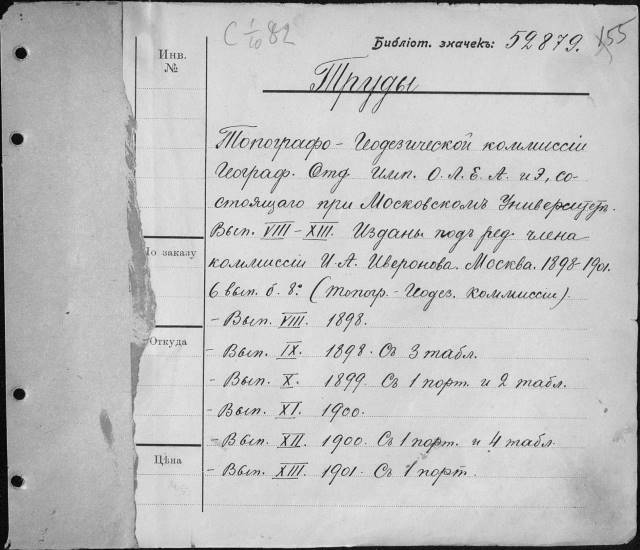 С 1/10 82
Библіот. значекъ: 52879. 155
Инв.
№
Труды
Топографо-Геодезической коммиссіи
Географ. Отд. Имп. О. Л. Е. А. и Э, со-
стоящаго при Московскомъ Университет.
Вып. VIII-XIII. Изданы подъ ред. члена
По заказу
коммиссіи И. А. Иверонова. Москва. 1898-1901.
6 вып. б. 8° (Топогр.-Геодез. Коммиссіи).
- Вып. VIII. 1898.
Откуда
- Вып. IX. 1898. Съ 3 табл.
- Вып. X. 1899. Съ 1 порт. и 2 табл.
- Вып. XI. 1900.
- Вып. XII. 1900. Съ 1 порт. и 4 табл.
Цѣна
- Вып. XIII. 1901. Съ 1 порт.